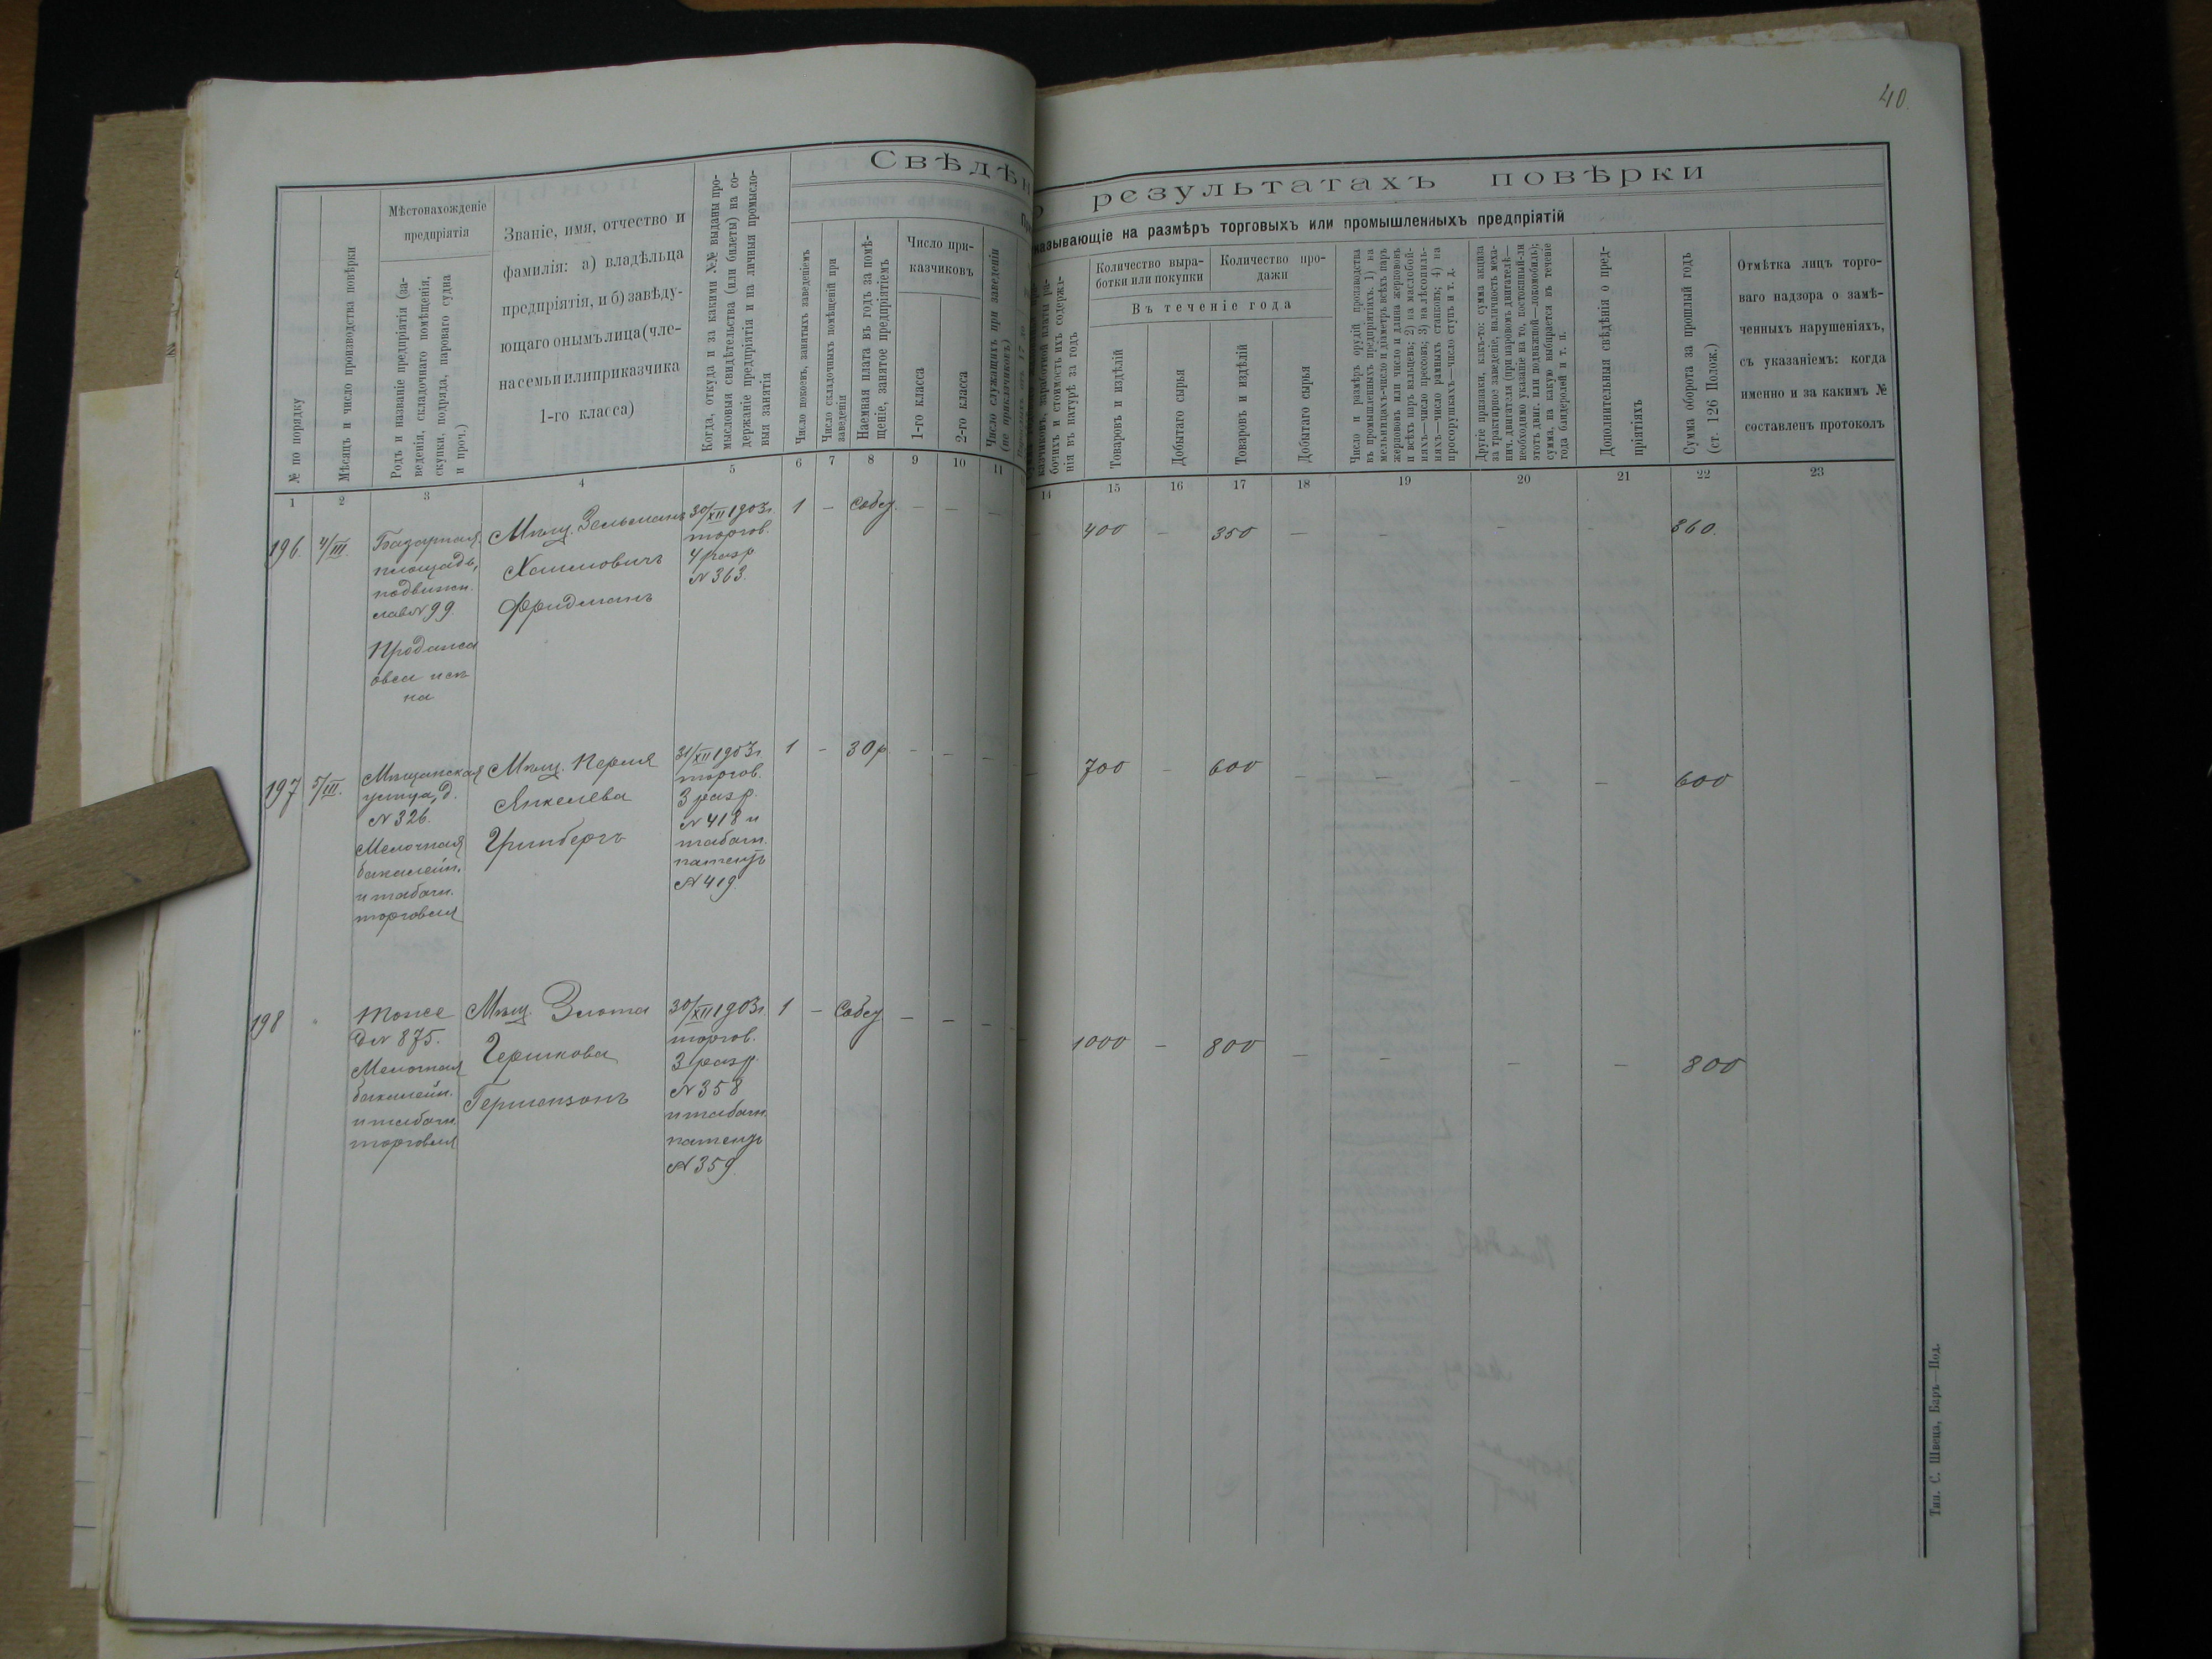 40.
Свѣдѣн
о результатахъ повѣрки
казывающіе на размѣръ торговыхъ или промышленныхъ предпріятій
№ по порядку
Мѣсяцъ и число производства повѣрки
Мѣстонахожденіе
предпріятія
Родъ и названіе предпріятія (за-
веденія, складочнаго помѣщенія,
скупки, подряда, парового судна
и проч.)
Званіе, имя, отчество и
фамилія: а) владѣльца
предпріятія, и б) завѣду-
ющаго онымъ лица (чле-
на семьи или приказчика
1-го класса)
Когда, откуда и за какими №№ выданы про-
мысловыя свидѣтельства (или билеты) на со-
держаніе предпріятія и на личныя промысло-
выя занятія
Число покоевъ, занятыхъ заведеніемъ
Число складочныхъ помѣщеній при
заведеніи
Наемная плата въ годъ за помѣ-
щеніе, занятое предпріятіемъ
Число при-
казчиковъ
1-го класса
2-го класса
Число служащихъ при заведеніи
(не приказчиковъ)
казчиковъ, заработной платы ра-
бочихъ и стоимость ихъ содержа-
нія въ натурѣ за годъ
Количество выра-
ботки или покупки
Количество про-
дажи
Въ теченіе года
Товаровъ и издѣлій
Добытаго сырья
Товаровъ и издѣлій
Добытаго сырья
Число и размѣръ орудій производства
въ промышленныхъ предпріятіяхъ. 1) на
мельницахъ-число и діаметръ всѣхъ паръ
жернововъ или число и длина жернововъ
и всѣхъ паръ вальцевъ; 2) на маслобой-
няхъ—число прессовъ; 3) на лѣсопиль-
няхъ—число рамныхъ станковъ; 4) на
просорушкахъ—число ступъ и т. д.
Другіе признаки, какъ-то: сумма акциза
за трактирное заведеніе, наличность меха-
нич. двигателя (при паровомъ двигателѣ—
необходимо указаніе на то, постоянный-ли
этотъ двиг. или подвижной—локомобиль);
сумма, на какую выбирается въ теченіе
года бандеролей и т. п.
Дополнительныя свѣдѣнія о пред-
пріятіяхъ
Сумма оборота за прошлый годъ
(ст. 126 Полож.)
Отмѣтка лицъ торго-
ваго надзора о замѣ-
ченныхъ нарушеніяхъ,
съ указаніемъ: когда
именно и за какимъ №
составленъ протоколъ
1 2 3 4 5 6 7 8 9 10 11 14 15 16 17 18 19 20 21 22 23
196. 4/III. Базарная Мѣщ. Зельманъ 30/XII 1903г. 1 — Собс. — — — — 400 — 350 — — — — 360.
площадь, Хаимовичъ торгов.
подвижн. Фридманъ 4 разр.
лав № 99. № 363.
Продажа
овса и сѣ-
на
197 5/III. Мѣщанская Мѣщ. Перля 31/XII 1903г. 1 — 30 р. — — — — 700 — 600 — — — — 600
улица, д. Янкелева торгов.
№ 326. Гринбергъ 3 разр.
Мелочная № 418 и
бакалейн. табачн.
и табачн. патентъ
торговля № 419.
198 „ Тоже Мѣщ. Злота 30/XII 1903г. 1 — Собс. — — — — 1000 — 800 — — — — 800
д № 875. Гершкова торгов.
Мелочная Германзонъ 3 разр.
бакалейн. № 358
и табачн. и табачн.
торговля патентъ
№ 359.
Тип. С. Швеца, Баръ—Под.